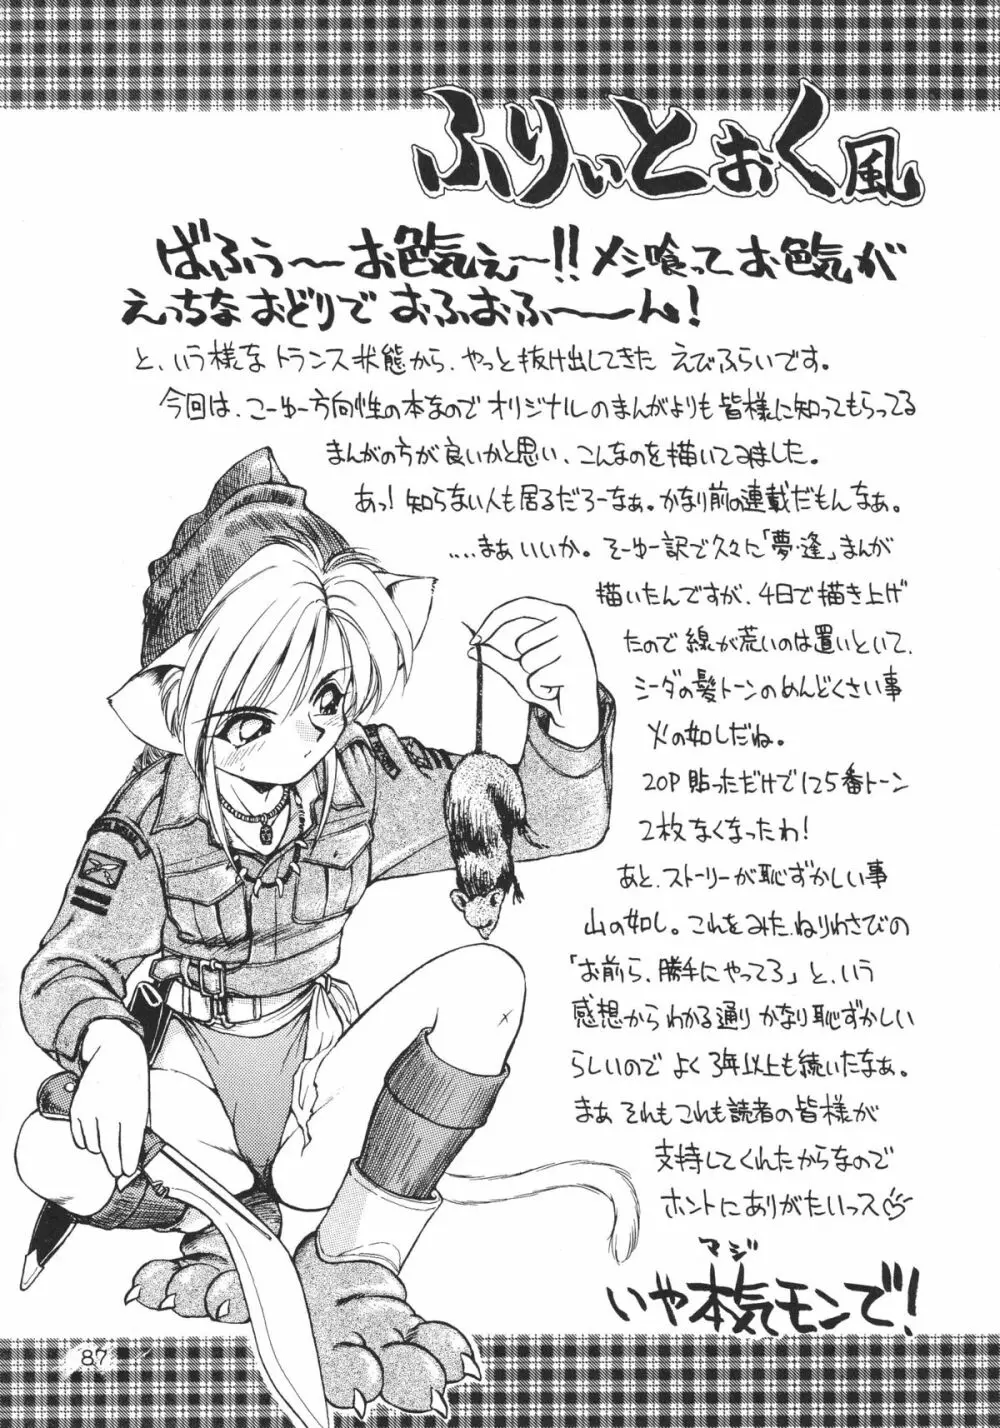 ふりぃとぉく風
ばふぅ〜お色気ぇ〜!!メシ喰ってお色気が
えっちなおどりでおふおふ〜ん!
と、いう様なトランス状態から、やっと抜け出してきたえびふらいです。
今回は、こーゆー方向性の本なのでオリジナルのまんがよりも皆様に知ってもらってる
まんがの方が良いかと思い、こんなのを描いてみました。
あっ!知らない人も居るだろーなぁ。かなり前の連載だもんなぁ。
‥‥まぁいいか。そーゆー訳で久々に「夢・逢」まんが
描いたんですが、4日で描き上げ
たので線が荒いのは置いといて、
シーダの髪トーンのめんどくさい事
火の如しだね。
20P貼っただけで125番トーン
2枚なくなったわ!
あと、ストーリーが恥ずかしい事
山の如し。これをみた、ねりわさびの
「お前ら、勝手にやってろ」と、いう
感想からわかる通りかなり恥ずかしい
らしいのでよく3年以上も続いたなぁ。
まぁそれもこれも読者の皆様が
支持してくれたからなので
ホントにありがたいっス
マジ
いや本気モンで!
87